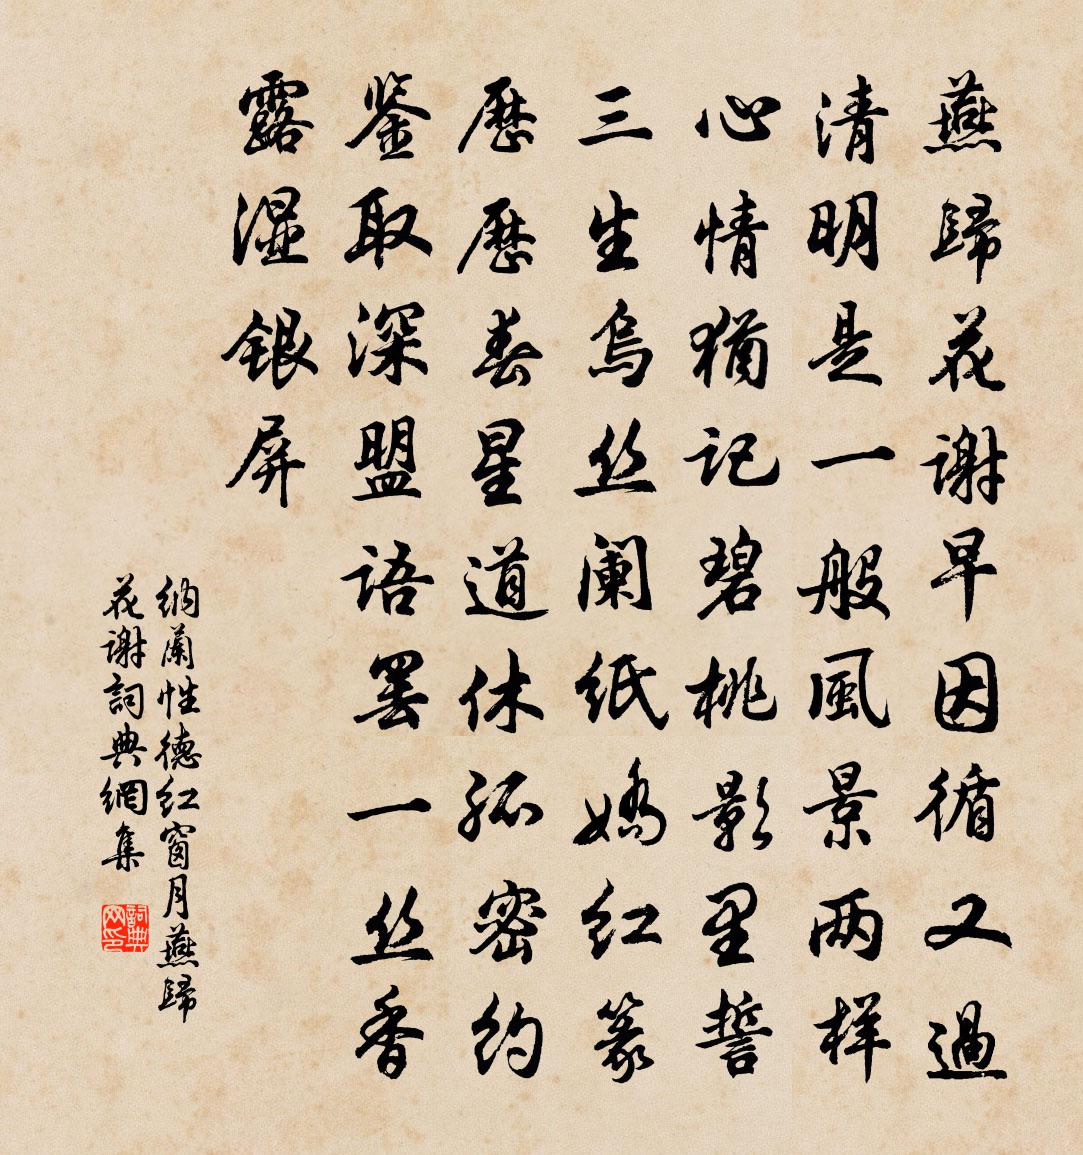 燕歸花谢早因循又過
清明是一般風景两样
心情猶记碧桃影里誓
三生烏丝阑纸娇红篆
歷歷春星道休孤密约
鉴取深盟语罢一丝香
露湿银屏
纳蘭性德红窗月燕歸
花谢詞典網集
詞典网印